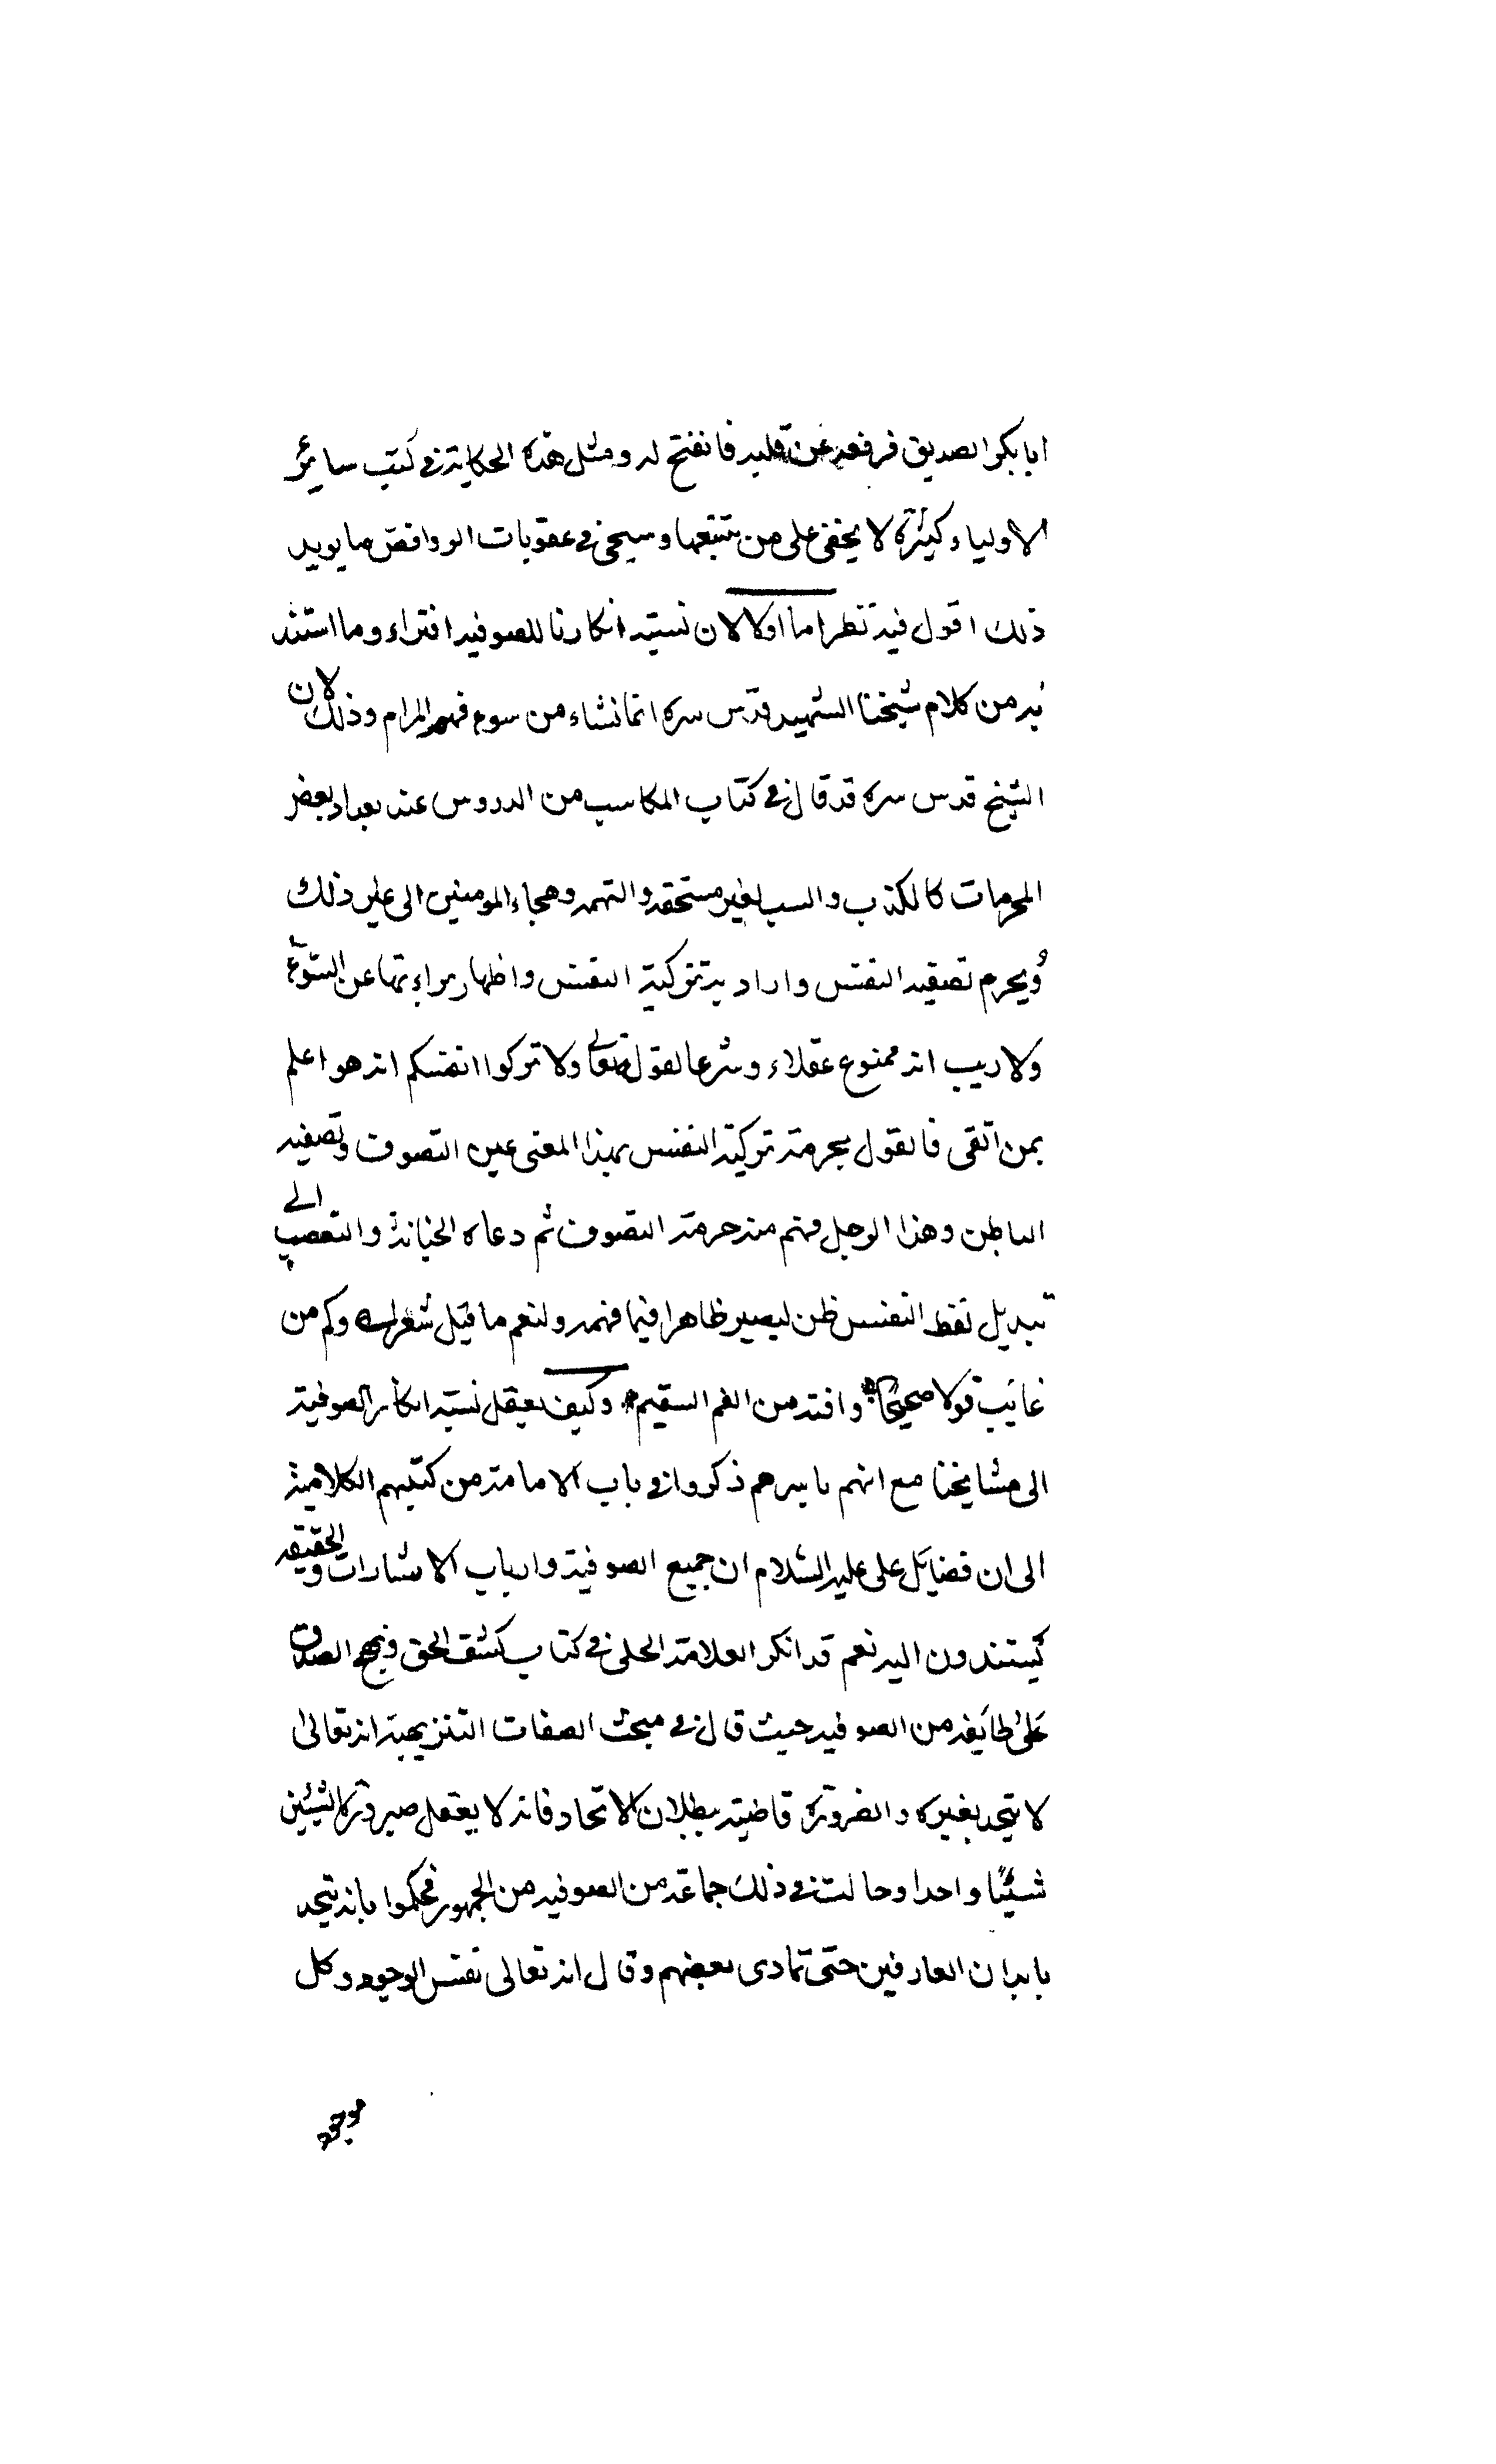 ابابكر الصديق فرفعه عن قلبه فانفتح له ومثل هذه الحكاية في كتب ساير
الاولياء كثيرة لا يخفى على من تتبعها وسيجئ في عقوبات الروافض ما يويد
ذلك اقول فيه نظر اما اولا لان نسبة انكارنا للصوفيه افتراء وما استند
به من كلام شيخنا الشهيد قدس سره انما نشاء من سوء فهم المرام وذلك لان
الشيخ قدس سره قد قال في كتاب المكاسب من الدروس عند تعداد بعض
المحرمات كالكذب والسب لغير مستحقه والتهمه وهجاء المومنين الى غير ذلك
ويحرم تصفيه النفس واراد به تزكية النفس واظهار براءتها عن السوء
ولا ريب انه ممنوع عقلاء وشرعا لقوله تعالى ولا تزكوا انفسكم انه هو اعلم
بمن اتقى فالقول بحرمة تزكية النفس بهذا المعنى عين التصوف وتصفيه
الباطن وهذا الرجل فهم منه حرمة التصوف ثم دعاه الخيانة والتعصب الى
تبديل لفظ النفس ظن ليصير ظاهرا فيما فهمه ولنعم ما قيل شعر وكم من
غايب قولا صحيحا وافته من الفهم السقيم وكيف يعقل نسبة انكار الصوفية
الى مشايخنا مع انهم باسرهم ذكروا في باب الامامة من كتبهم الكلامية
الى ان فضايل على عليه السلام ان جميع الصوفية وارباب الاشارات والحقيقه
يستندون اليه نعم قد انكر العلامة الحلى في كتاب كشف الحق ونهج الصدق
على طايفه من الصوفيه حيث قال في مبحث الصفات التنزيهية انه تعالى
لا يتحد بغيره والضرورة قاضية ببطلان الاتحاد فانه لا يعقل صيرورة الشيئين
شيئا واحدا وخالف في ذلك جماعة من الصوفيه من الجمهور فحكموا بانه يتحد
بابدان العارفين حتى تمادى بعضهم وقال انه تعالى نفس الوجود وكل
موجود